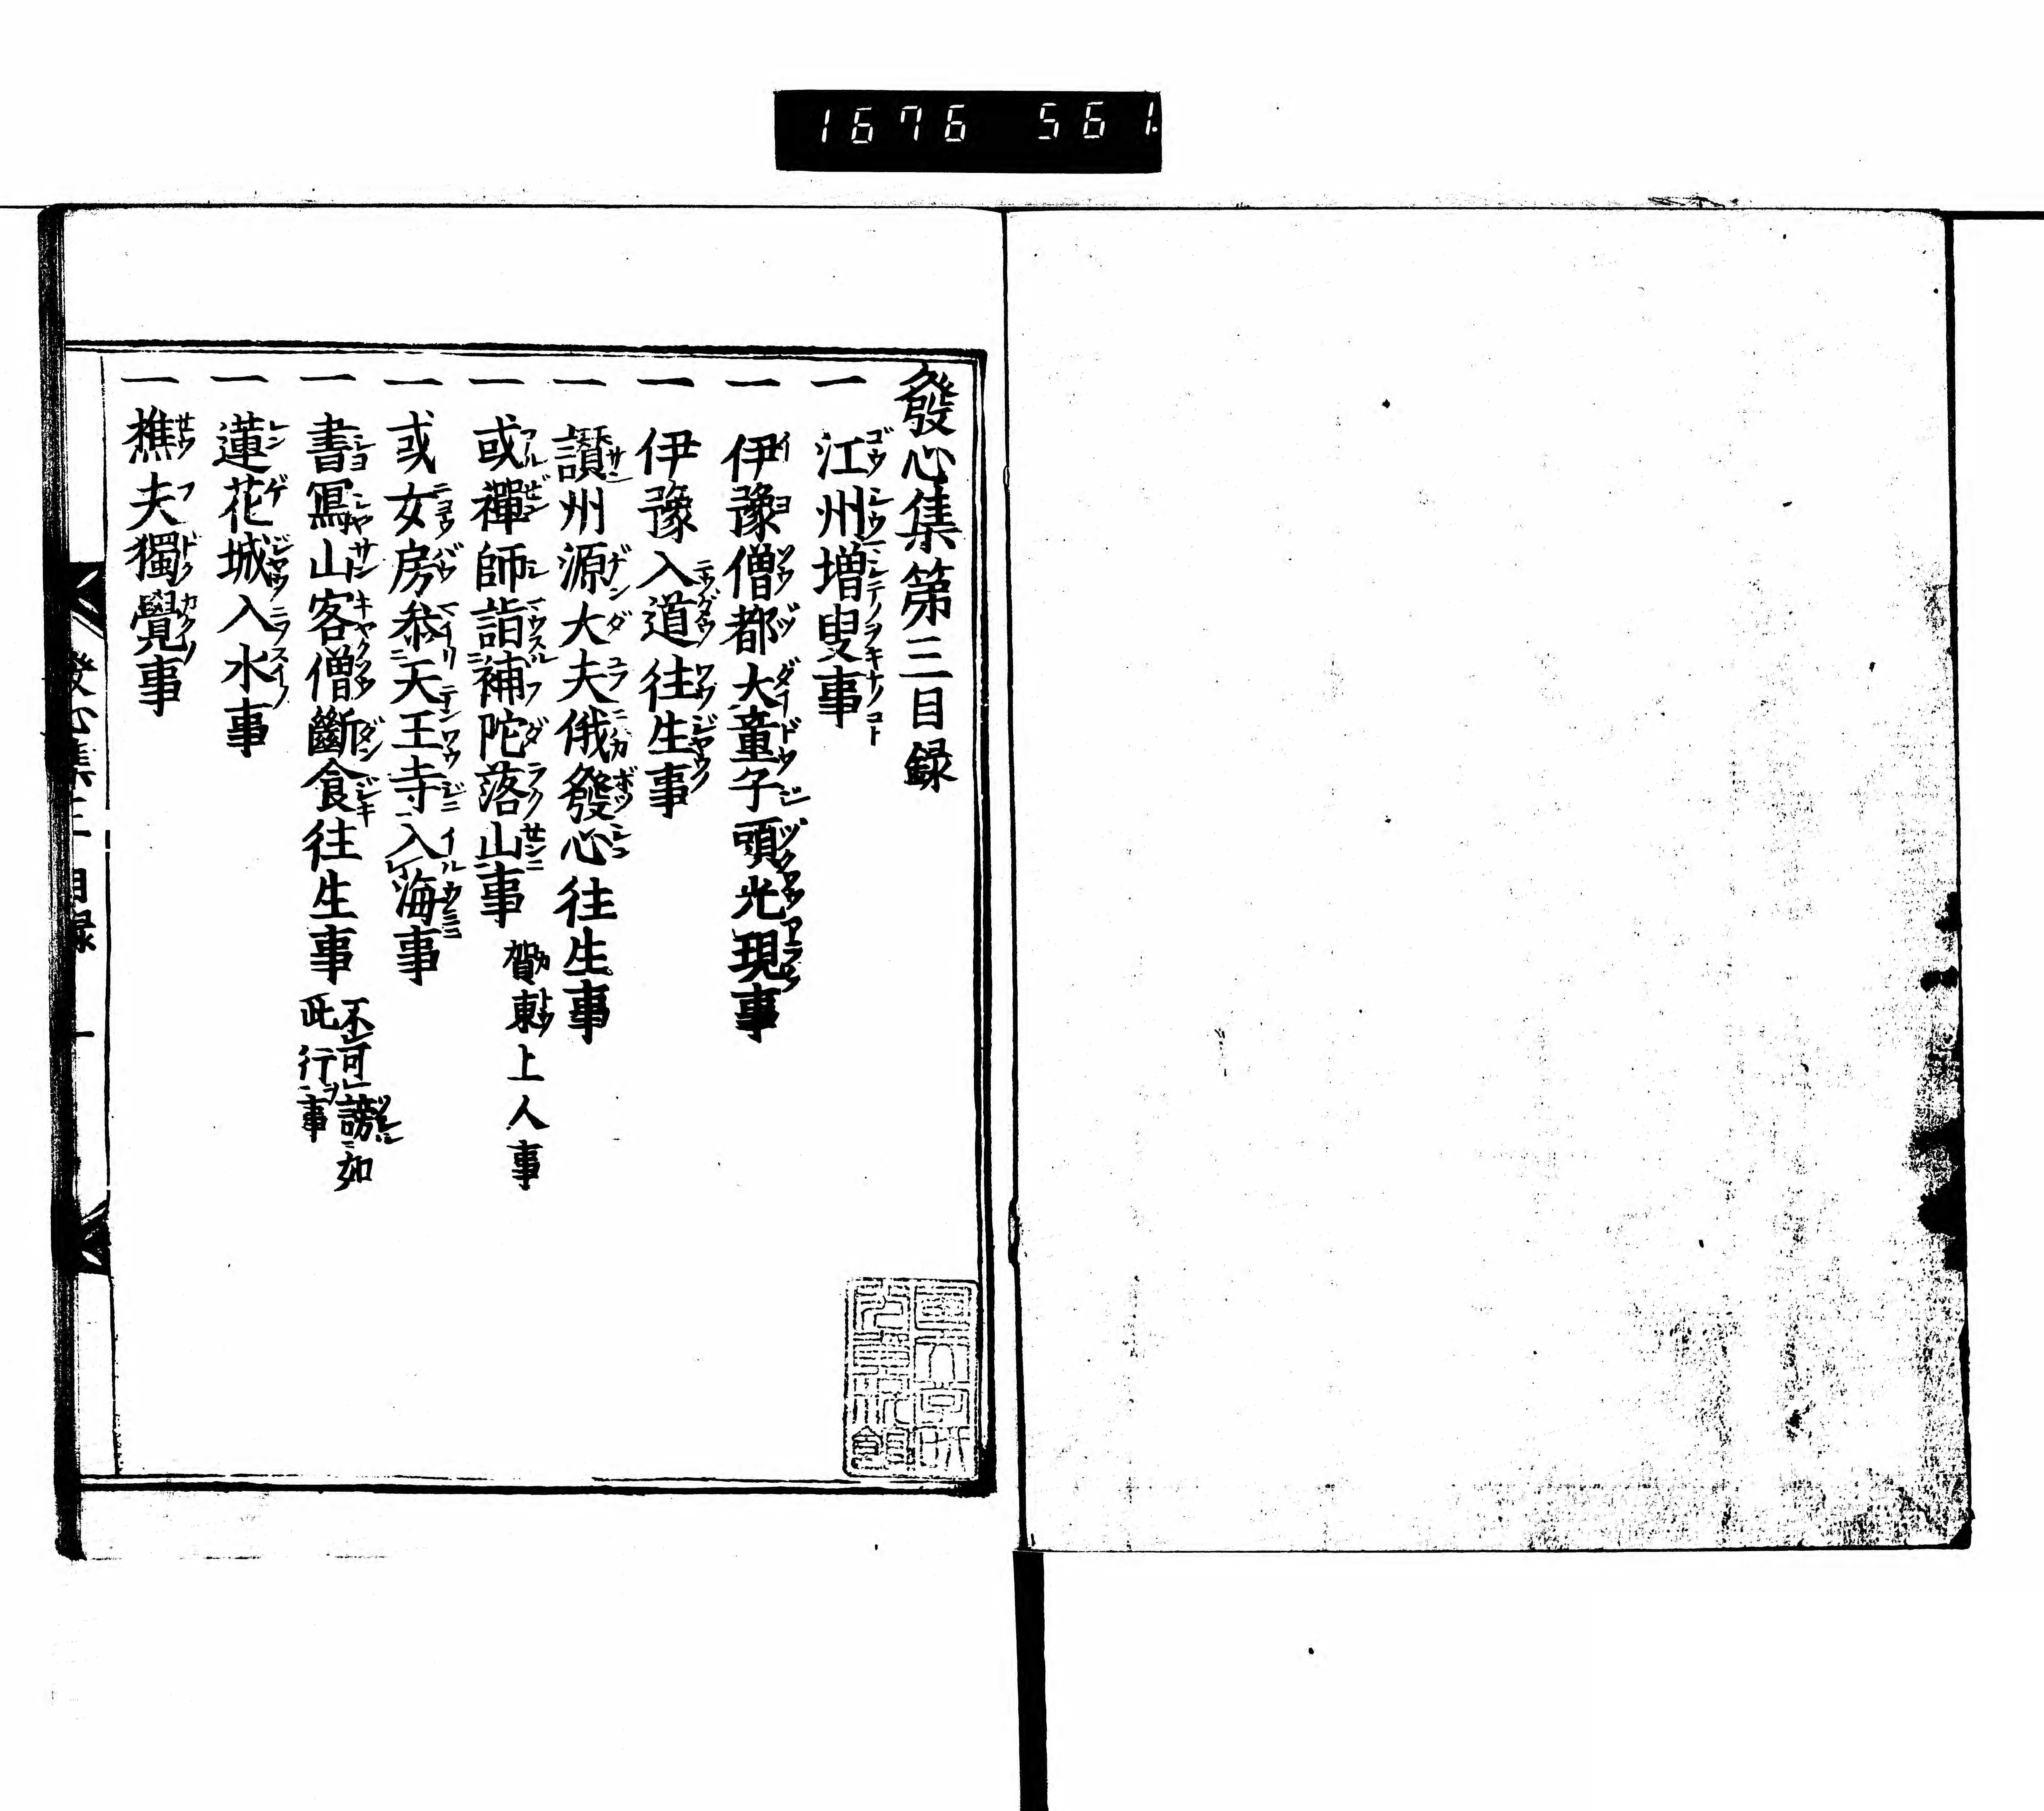 1676 561.
發心集第三目録
一 江州増叟事
一 伊豫僧都大童子頭光現事
一 伊豫入道往生事
一 讃州源大夫俄發心往生事
一 或禪師詣補陀落山事 賀東上人事
一 或女房叅天王寺入海事
一 書冩山客僧斷食往生事 不可謗如
此行事
一 蓮花城入水事
一 樵夫獨覺事
發心集三 目録 一